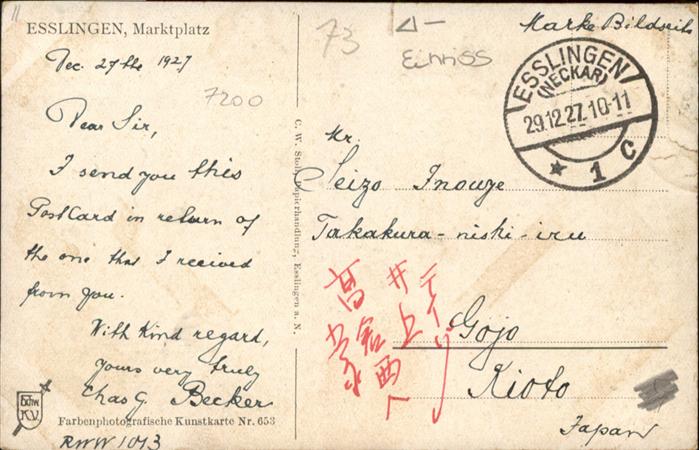 ESSLINGEN, Marktplatz
Dec. 27the 1927
7200
Dear Sir,
I send you this
PostCard in return of
the one that I recived
from you.
With Kind regard,
yours very truly
Chas G. Becker
Farbenphotografische Kunstkarte Nr. 653
RWW 1013
C. W. Stolz, Papierhandlung, Esslingen a. N.
73
Einriss
Marke Bildseite
ESSLINGEN
(NECKAR)
29.12.27.10-11
* 1 c
Mr.
Seizo Inouye
Takakura-nishi-iru
Gojo
Kioto
Japan
井上
西へ